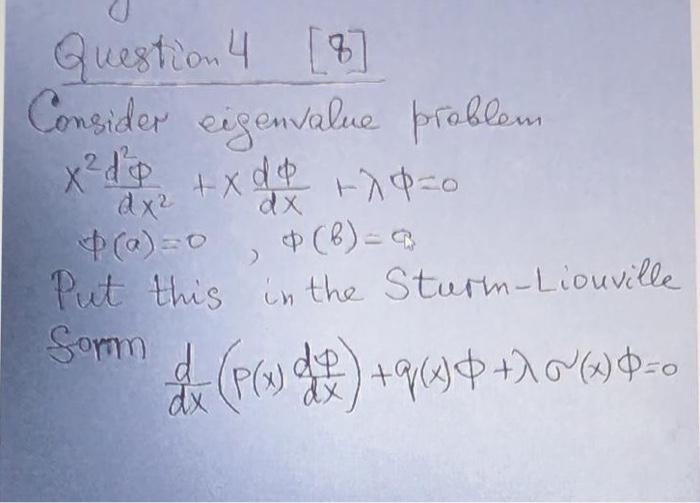 Question 4 [8]
Consider eigenvalue problem
x² d²φ/dx² + x dφ/dx + λφ=0
φ(a)=0 , φ(b)=
Put this in the Sturm-Liouville
form
d/dx (p(x) dφ/dx) + q(x)φ + λσ(x)φ=0